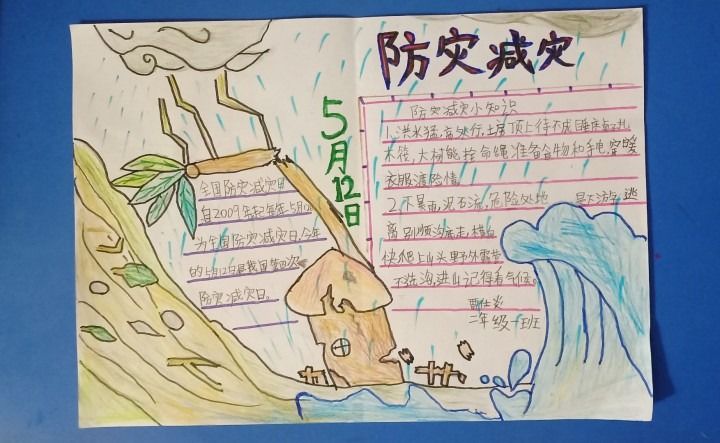 防灾减灾
5月12日
全国防灾减灾日
自2009年起每年5月12
为全国防灾减灾日,今年
的5月12日是我国第四次
防灾减灾日。
防灾减灾小知识
1.洪水猛,高处行,土房顶上待不成,睡床
木筏,大树能拴命绳,准备食物和手电,穿暖
衣服渡险情
2.下暴雨,泥石流,危险处地是下游,逃
离别顺沟底走,横向
快爬上山头,野外露营
不选沟,进山记得看气候。
二年级一班